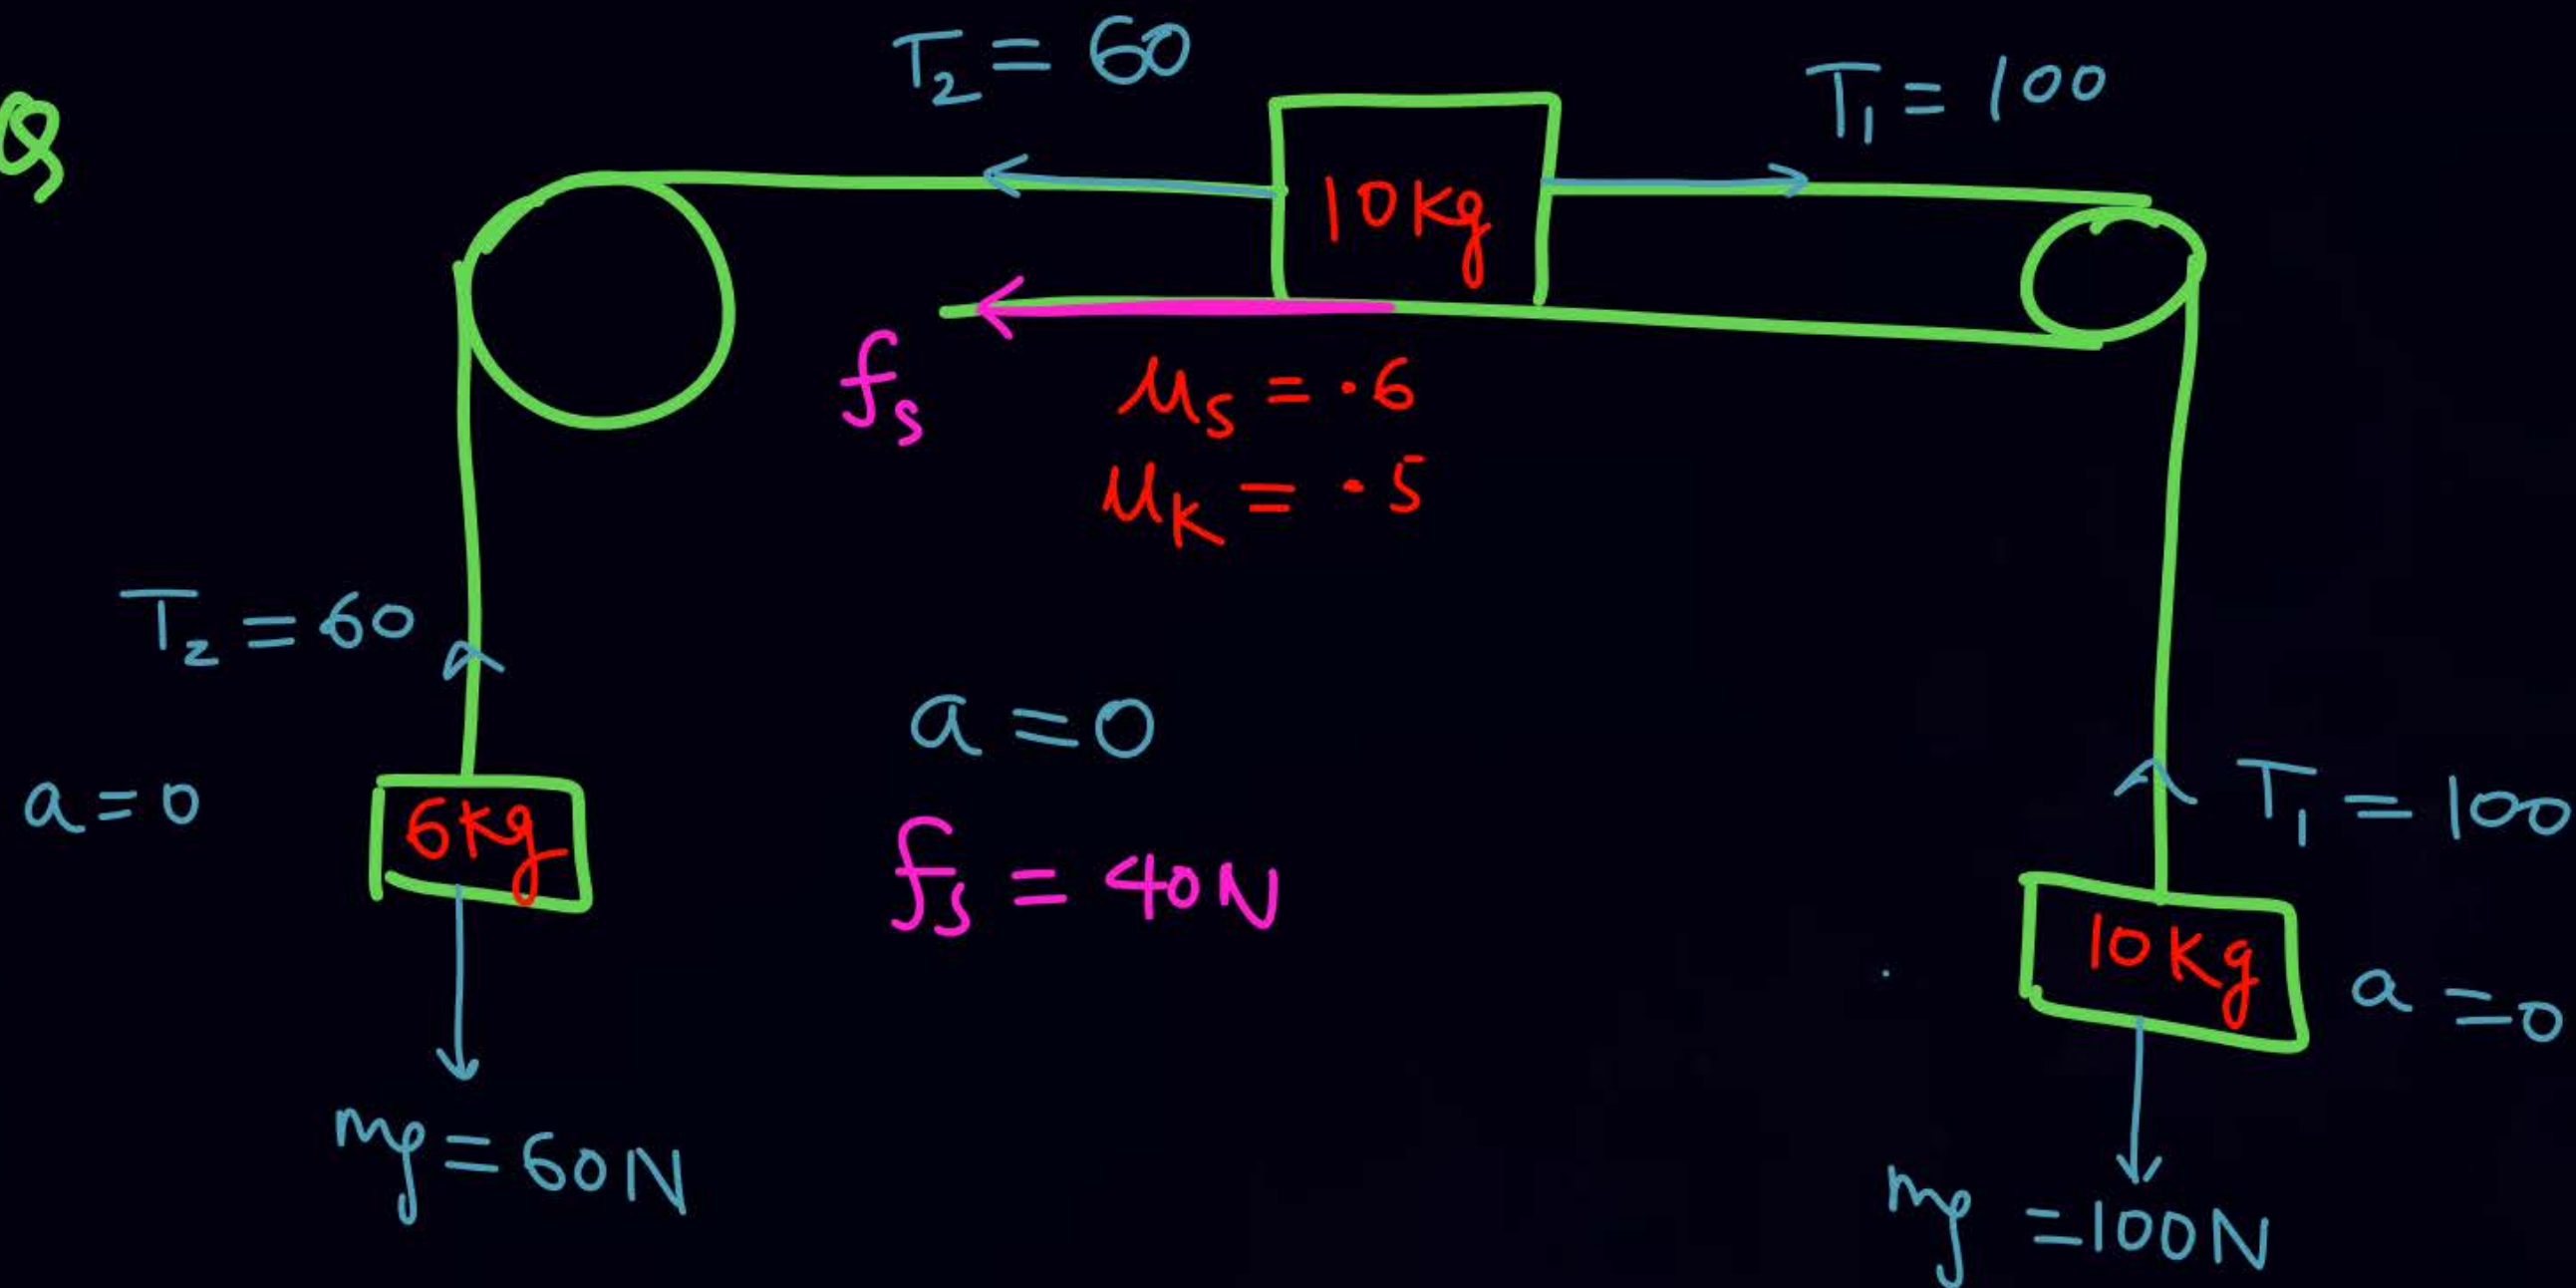 Q
T₂ = 60
T₁ = 100
10 kg
fₛ
μₛ = .6
μₖ = .5
T₂ = 60
a = 0
a = 0
6 kg
fₛ = 40 N
T₁ = 100
10 kg
a = 0
mg = 60 N
mg = 100 N